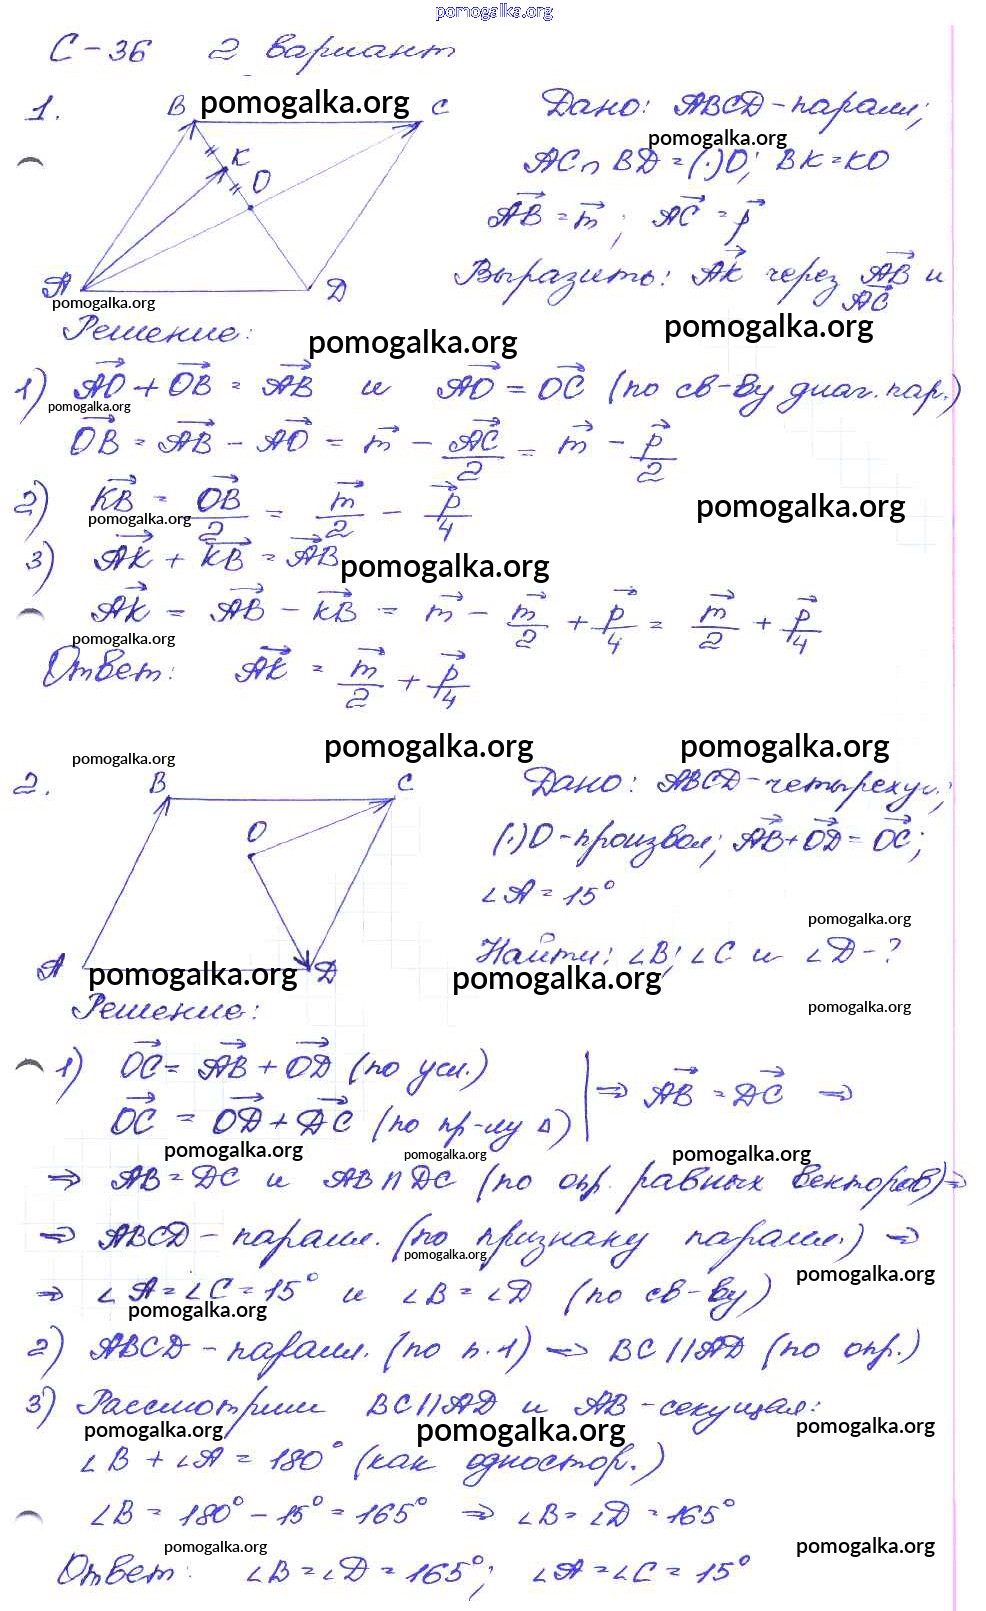 pomogalka.org
С-36 2 вариант
1. B pomogalka.org C Дано: ABCD-паралл;
pomogalka.org
K AC∩BD=(·)O; BK=KO
O
AB=m; AC=p
A D Выразить: AK через AB и AC
pomogalka.org
Решение: pomogalka.org pomogalka.org
1) AO+OB=AB и AO=OC (по св-ву диаг. пар.)
pomogalka.org
OB=AB-AO=m-AC/2=m-p/2
2) KB=OB/2=m/2-p/4 pomogalka.org
pomogalka.org
3) AK+KB=AB pomogalka.org
AK=AB-KB=m-m/2+p/4=m/2+p/4
pomogalka.org
Ответ: AK=m/2+p/4
pomogalka.org pomogalka.org pomogalka.org
2. B C Дано: ABCD-четырехуг.;
O (·)O-произвол; AB+OD=OC;
∠A=15°
pomogalka.org
A D Найти: ∠B; ∠C и ∠D-?
pomogalka.org pomogalka.org
Решение: pomogalka.org
1) OC=AB+OD (по усл.)
⇒ AB=DC ⇒
OC=OD+DC (по пр-лу Δ)
pomogalka.org pomogalka.org pomogalka.org
⇒ AB=DC и AB∩DC (по опр. равных векторов)⇒
⇒ ABCD-паралл. (по признаку паралл.) ⇒
pomogalka.org pomogalka.org
⇒ ∠A=∠C=15° и ∠B=∠D (по св-ву)
pomogalka.org
2) ABCD-паралл. (по п.1) ⇒ BC||AD (по опр.)
3) Рассмотрим BC||AD и AB-секущая:
pomogalka.org pomogalka.org pomogalka.org
∠B+∠A=180° (как одностор.)
∠B=180°-15°=165° ⇒ ∠B=∠D=165°
pomogalka.org pomogalka.org
Ответ: ∠B=∠D=165°; ∠A=∠C=15°